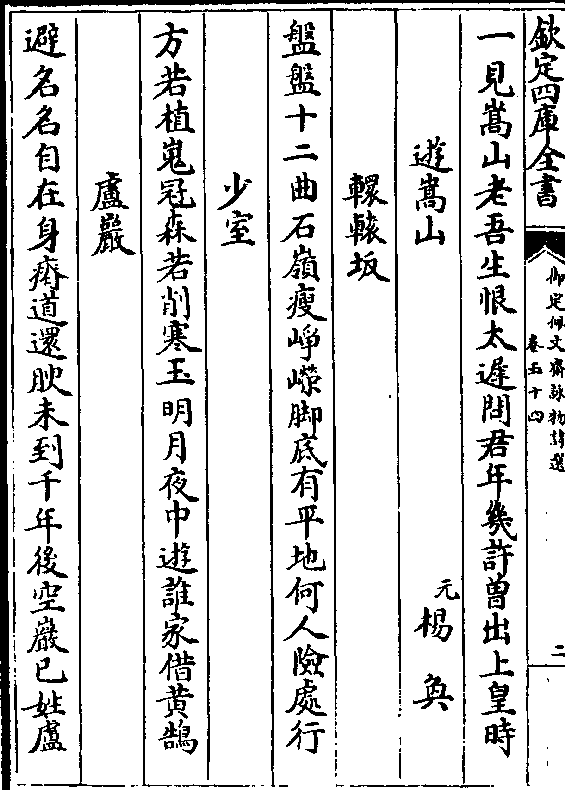 欽定四庫全書
御定佩文齋詠物詩選
卷五十四
二
一見嵩山老吾生恨太遲問君年幾許曾出上皇時
遊嵩山
元
楊奐
轘轅坂
盤盤十二曲石嶺瘦崢嶸脚底有平地何人險處行
少室
方若植嵬冠森若削寒玉明月夜中遊誰家借黄鵠
盧巖
避名名自在身瘠道還腴未到千年後空巖已姓盧